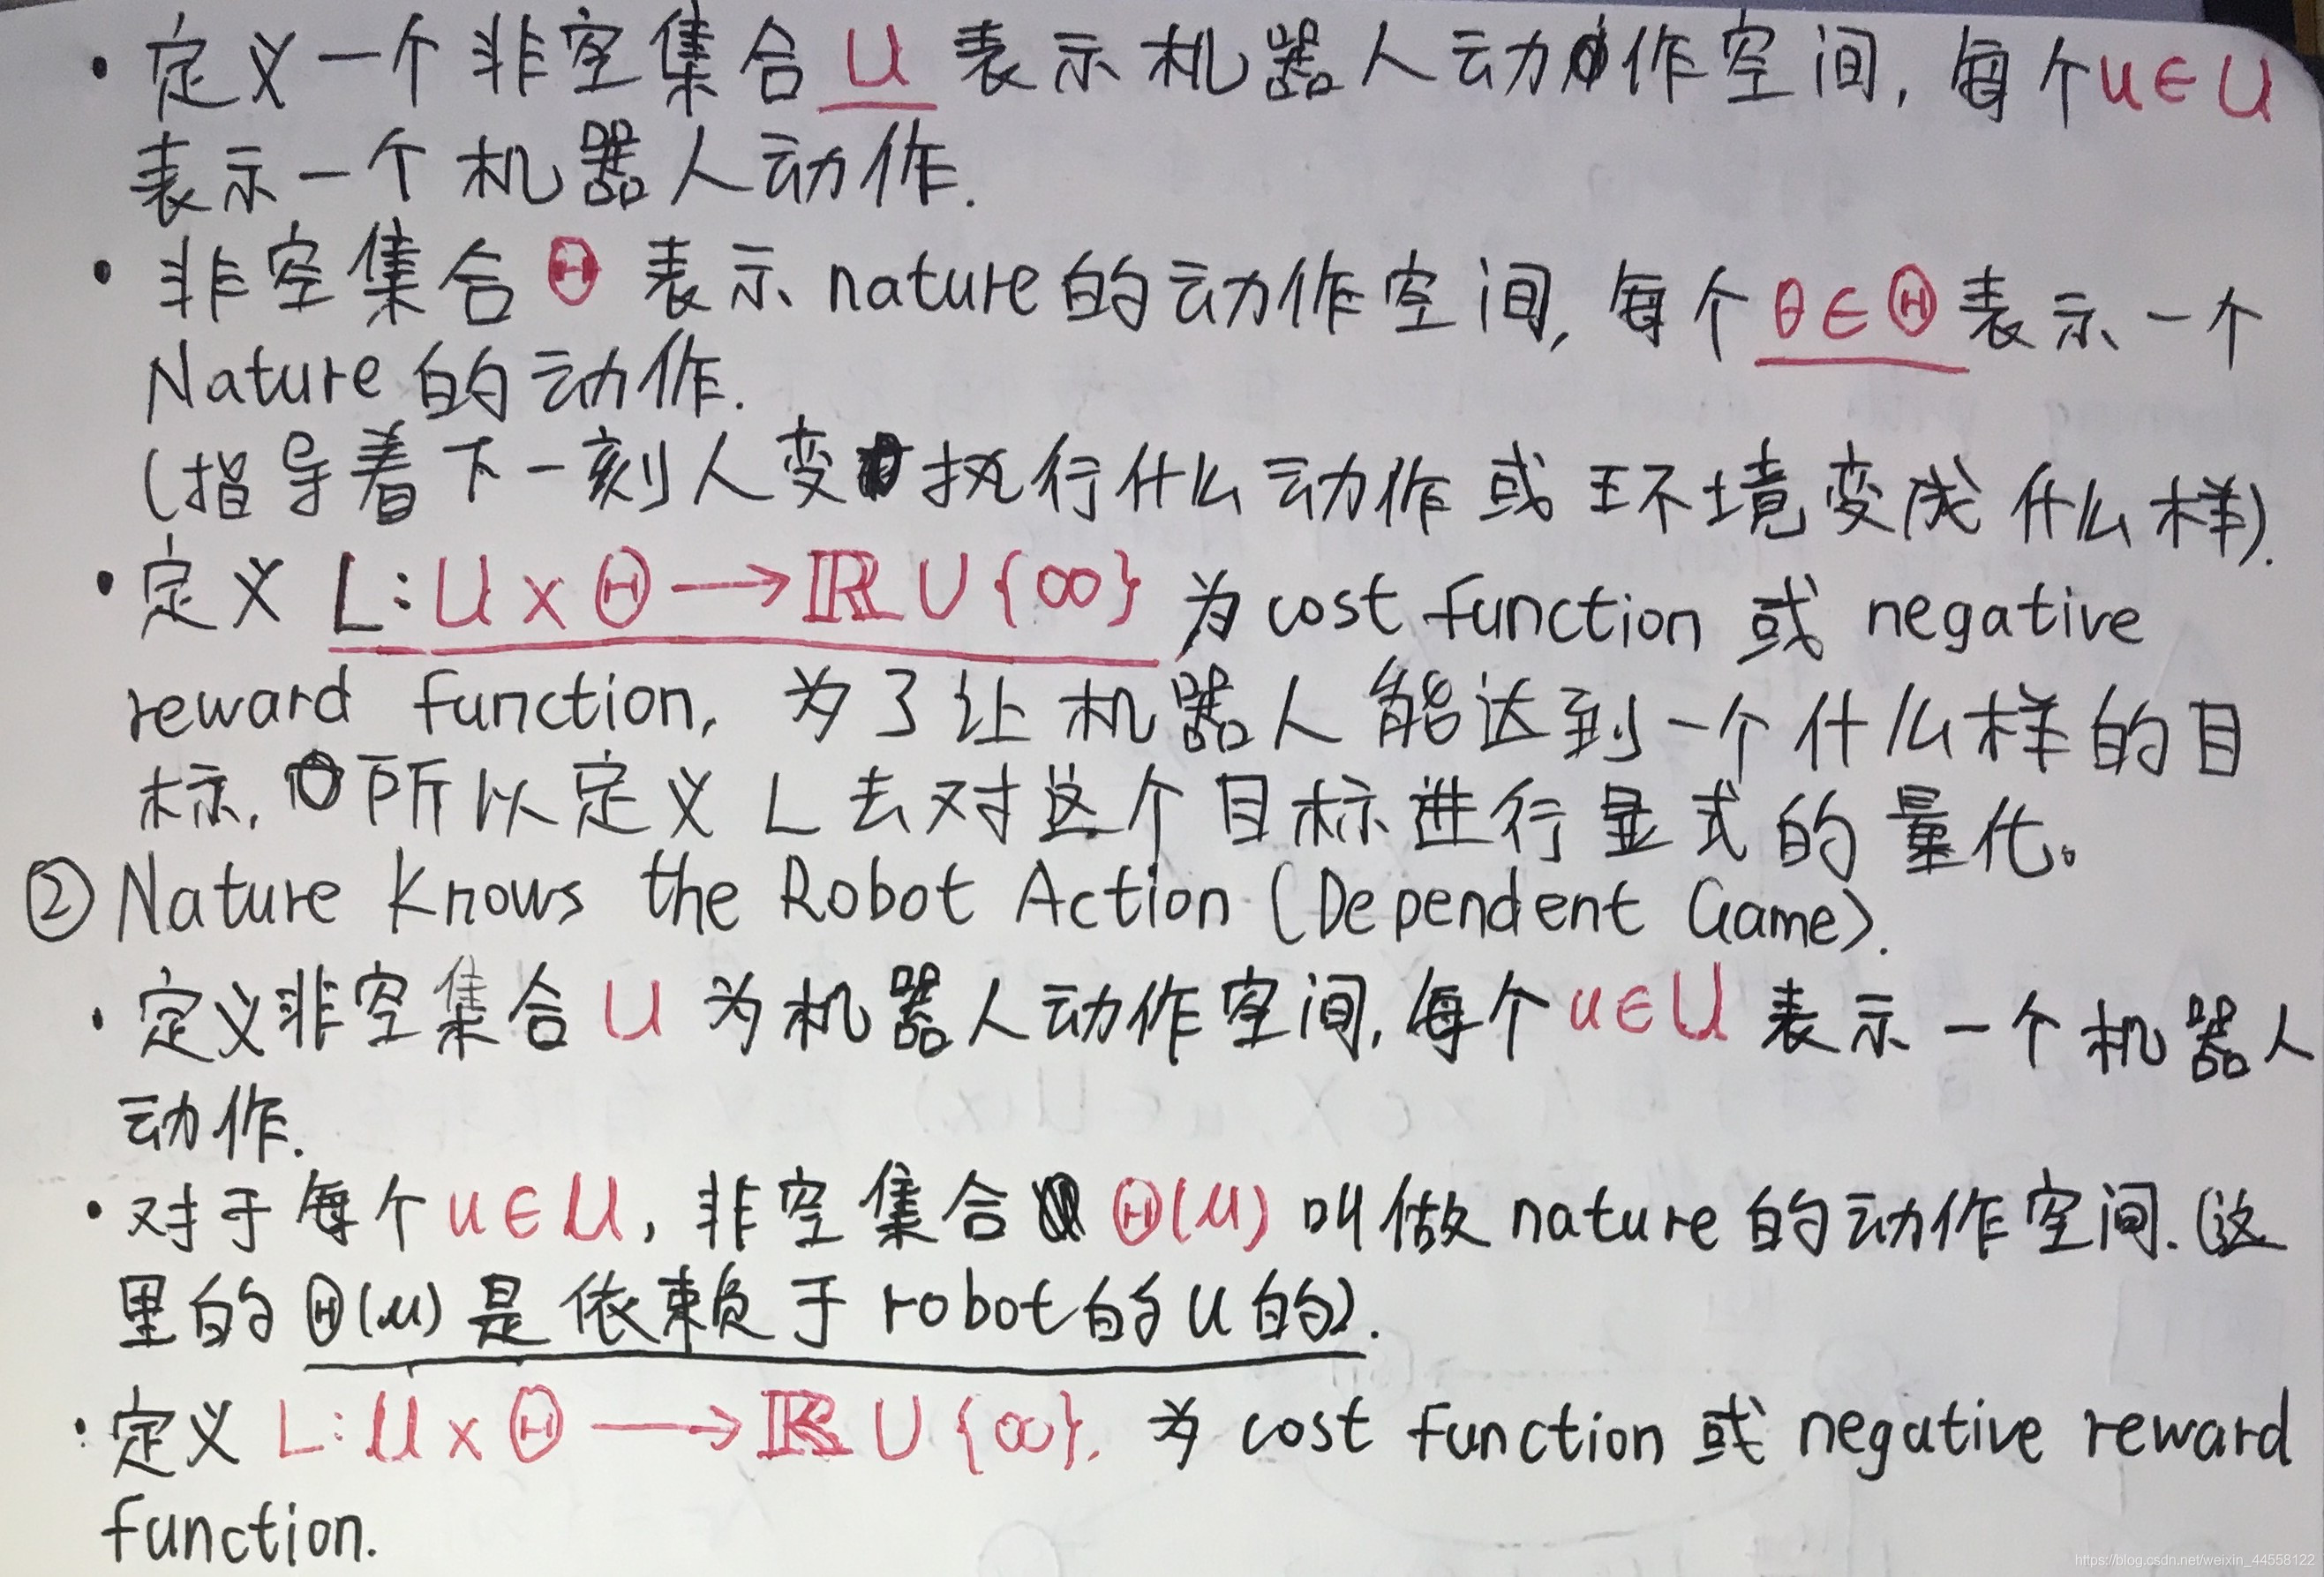 • 定义一个非空集合 U 表示机器人动作空间, 每个 u∈U
表示一个机器人动作.
• 非空集合 Θ 表示 nature 的动作空间, 每个 θ∈Θ 表示一个
Nature 的动作.
(指导着下一刻人变执行什么动作或环境变成什么样).
• 定义 L: U × Θ → ℝ ∪ {∞} 为 cost function 或 negative
reward function, 为了让机器人能达到一个什么样的目
标, 所以定义 L 去对这个目标进行显式的量化。
② Nature Knows the Robot Action (Dependent Game).
• 定义非空集合 U 为机器人动作空间, 每个 u∈U 表示一个机器人
动作.
• 对于每个 u∈U, 非空集合 Θ(u) 叫做 nature 的动作空间. (这
里的 Θ(u) 是依赖于 robot 的 u 的).
• 定义 L: U × Θ → ℝ ∪ {∞}. 为 cost function 或 negative reward
function.
https://blog.csdn.net/weixin_44558122